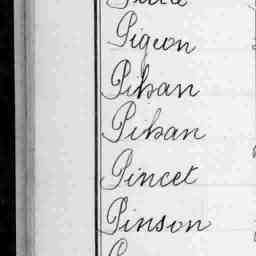 Pigeon
Pihan
Pihan
Pincet
Pinson